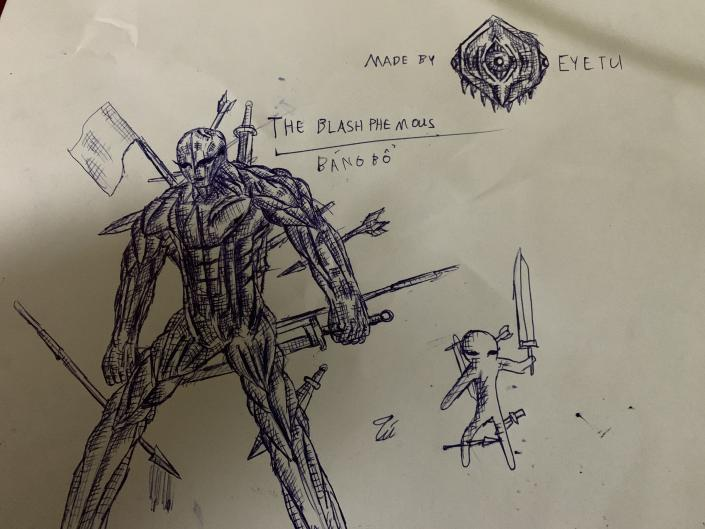 MADE BY EYETU
THE BLASHPHEMOUS
BÁNG BỔ